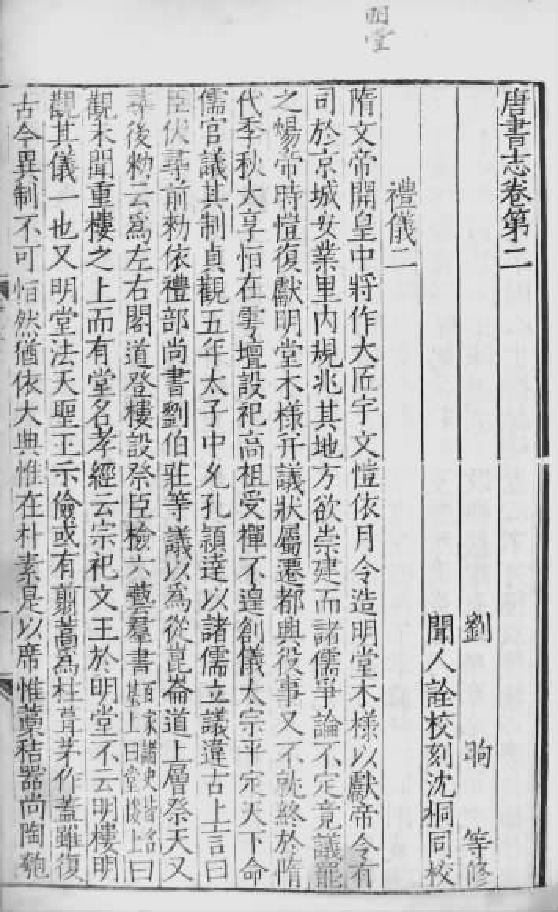 明堂
唐書志卷第二
劉 昫 等修
聞人詮校刻沈桐同校
禮儀二
隋文帝開皇中將作大匠宇文愷依月令造明堂木樣以獻帝令有
司於京城安業里内規兆其地方欲崇建而諸儒爭論不定竟議罷
之煬帝時愷復獻明堂木樣并議狀屬遷都興役事又不就終於隋
代季秋大享恒在雩壇設祀高祖受禪不遑創儀太宗平定天下命
儒官議其制貞觀五年太子中允孔頴達以諸儒立議違古上言曰
臣伏尋前勑依禮部尚書劉伯莊等議以爲從崑崙道上層祭天又
尋後勑云爲左右閣道登樓設祭臣檢六藝羣書百家諸史皆名基上曰堂樓上曰
觀未聞重樓之上而有堂名孝經云宗祀文王於明堂不云明樓明
觀其儀一也又明堂法天聖王示儉或有翦蒿爲柱葺茅作蓋雖復
古今異制不可恒然猶依大典惟在朴素是以席惟藁秸器尚陶匏